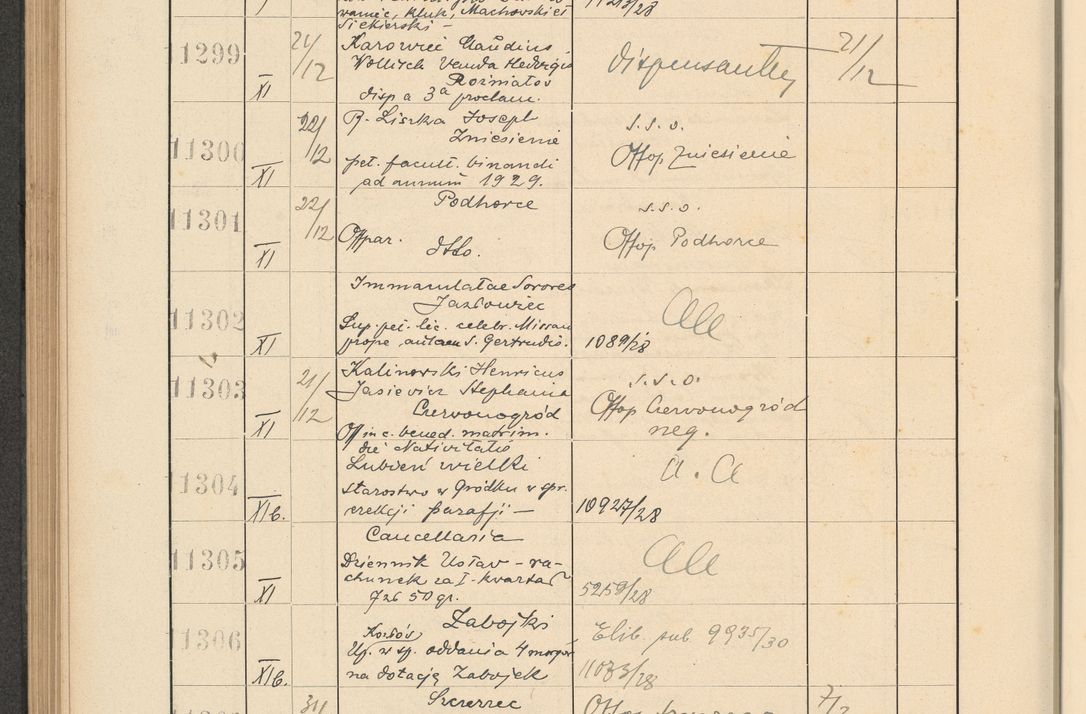 vaniec, Kluk, Machovskiei
Siekierski —
11299 XI 21/12 Karowiec Claudius
Wollitch Vanda Hedvigis
Rożniatov
disp a 3ª proclam.
dispensantur 21/12
11300 XI 22/12 R. Liszka Joseph
Zniesienie
pet. facult. binandi
ad annum 1929.
s.s.o.
Offop Zniesienie
11301 XI 22/12 Podhorce
Offpar. dtto.
s.s.o.
Offop Podhorce
11302 XI Immaculatae Sorores
Jazłowiec
Sup. pet. lic. celebr. Missam
prope S. Gertrudis.
1089/28
11303 XI 21/12 Kalinovski Henricus
Jasievicz Stephania
Czervonogród
Off in c. bened. matrim.
die Nativitatis
s.s.o.
Offop Czervonogród
neg.
11304 XIb. Lubień wielki
Starostwo w Gródku w spr.
erekcji parafji —
a. a
10927/28
11305 XI Cancellaria
Dziennik Ustaw - ra-
chunek za I. kwartał
7 zł 50 gr.
5259/28
11306 XIb. Zabojki
Up. w sp. oddania 4 morgów
na dotację Zabojek
Elib. sub 9935/30
11073/28
31 Szczerzec
7/2